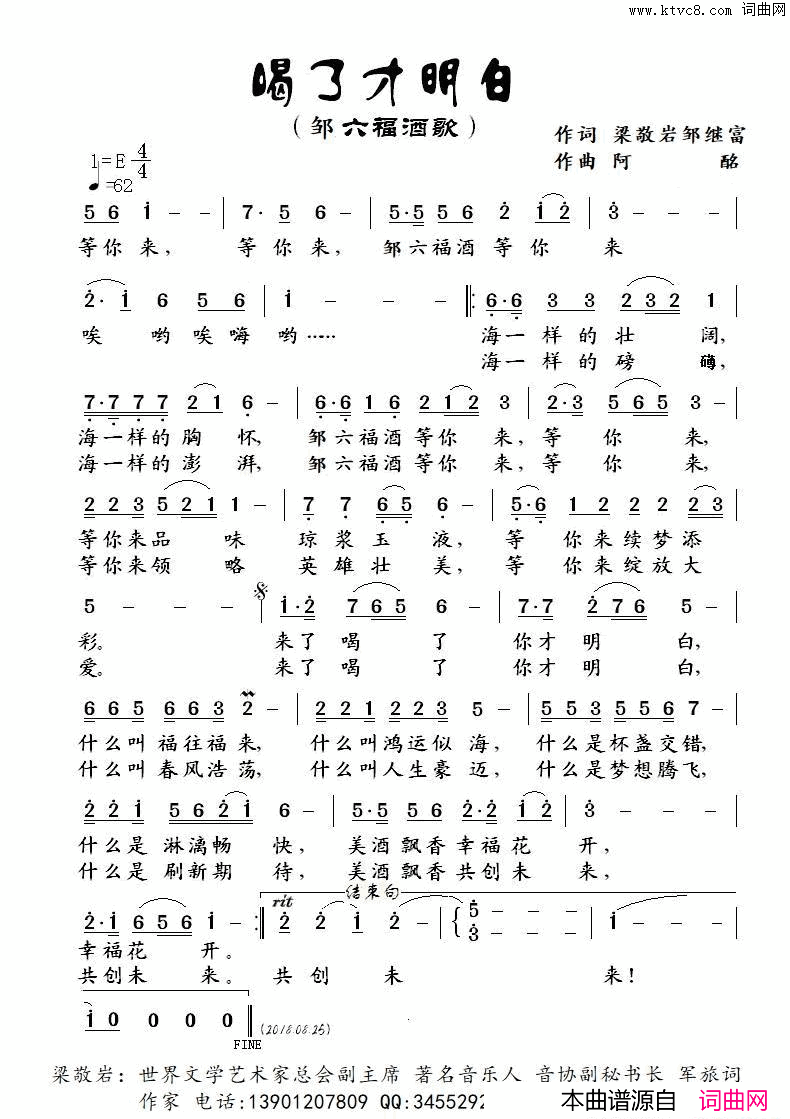 www.ktvc8.com 词曲网
喝了才明白
（邹六福酒歌）
作词 梁敬岩邹继富
1=E 4/4
作曲 阿 酩
♩=62
5 6 i - - | 7· 5 6 - - | 5·5 5 6 2 i 2 | 3 - - - |
等你来， 等你来， 邹六福酒等你 来
2·i 6 5 6 | i - - - ‖: 6·6 3 3 2 3 2 1 |
唉 哟唉嗨哟…… 海一样的壮 阔，
海一样的磅 礴，
7·7 7 7 2 1 6 - | 6·6 1 6 2 1 2 3 | 2·3 5 5 6 5 3 |
海一样的胸 怀， 邹六福酒等你 来，等 你 来，
海一样的澎 湃， 邹六福酒等你 来，等 你 来，
2 2 3 5 2 1 1 - | 7 7 6 5 6 - | 5·6 1 2 2 2 5 |
等你来品 味 琼浆玉 液， 等 你来续梦添
等你来领 略 英雄壮 美， 等 你来绽放大
5 - - - | i·2 7 6 5 6 - | 7·7 2 7 6 5 - |
彩。 来了喝 了 你才明 白，
爱。 来了喝 了 你才明 白，
6 6 5 6 6 3 2 - | 2 2 1 2 2 3 5 - | 5 5 3 5 5 6 7 - |
什么叫福往福来， 什么叫鸿运似海， 什么是杯盏交错，
什么叫春风浩荡， 什么叫人生豪迈， 什么是梦想腾飞，
2 2 i 5 6 2 i 6 - | 5·5 5 6 2 2 2 i 2 | 3 - - - |
什么是淋漓畅 快， 美酒飘香幸福花 开，
什么是刷新期 待， 美酒飘香共创未 来，
rit 结束句
2·i 6 5 6 i - :‖ 2 2 i 2 - | 5 3 - - - | i - - - |
幸福花 开。
共创未 来。 共 创 未 来！
i 0 0 0 0 ‖ (2018.08.25)
FINE
梁敬岩：世界文学艺术家总会副主席 著名音乐人 音协副秘书长 军旅词
作家 电话:13901207809 QQ:3455292
本曲谱源自 词曲网